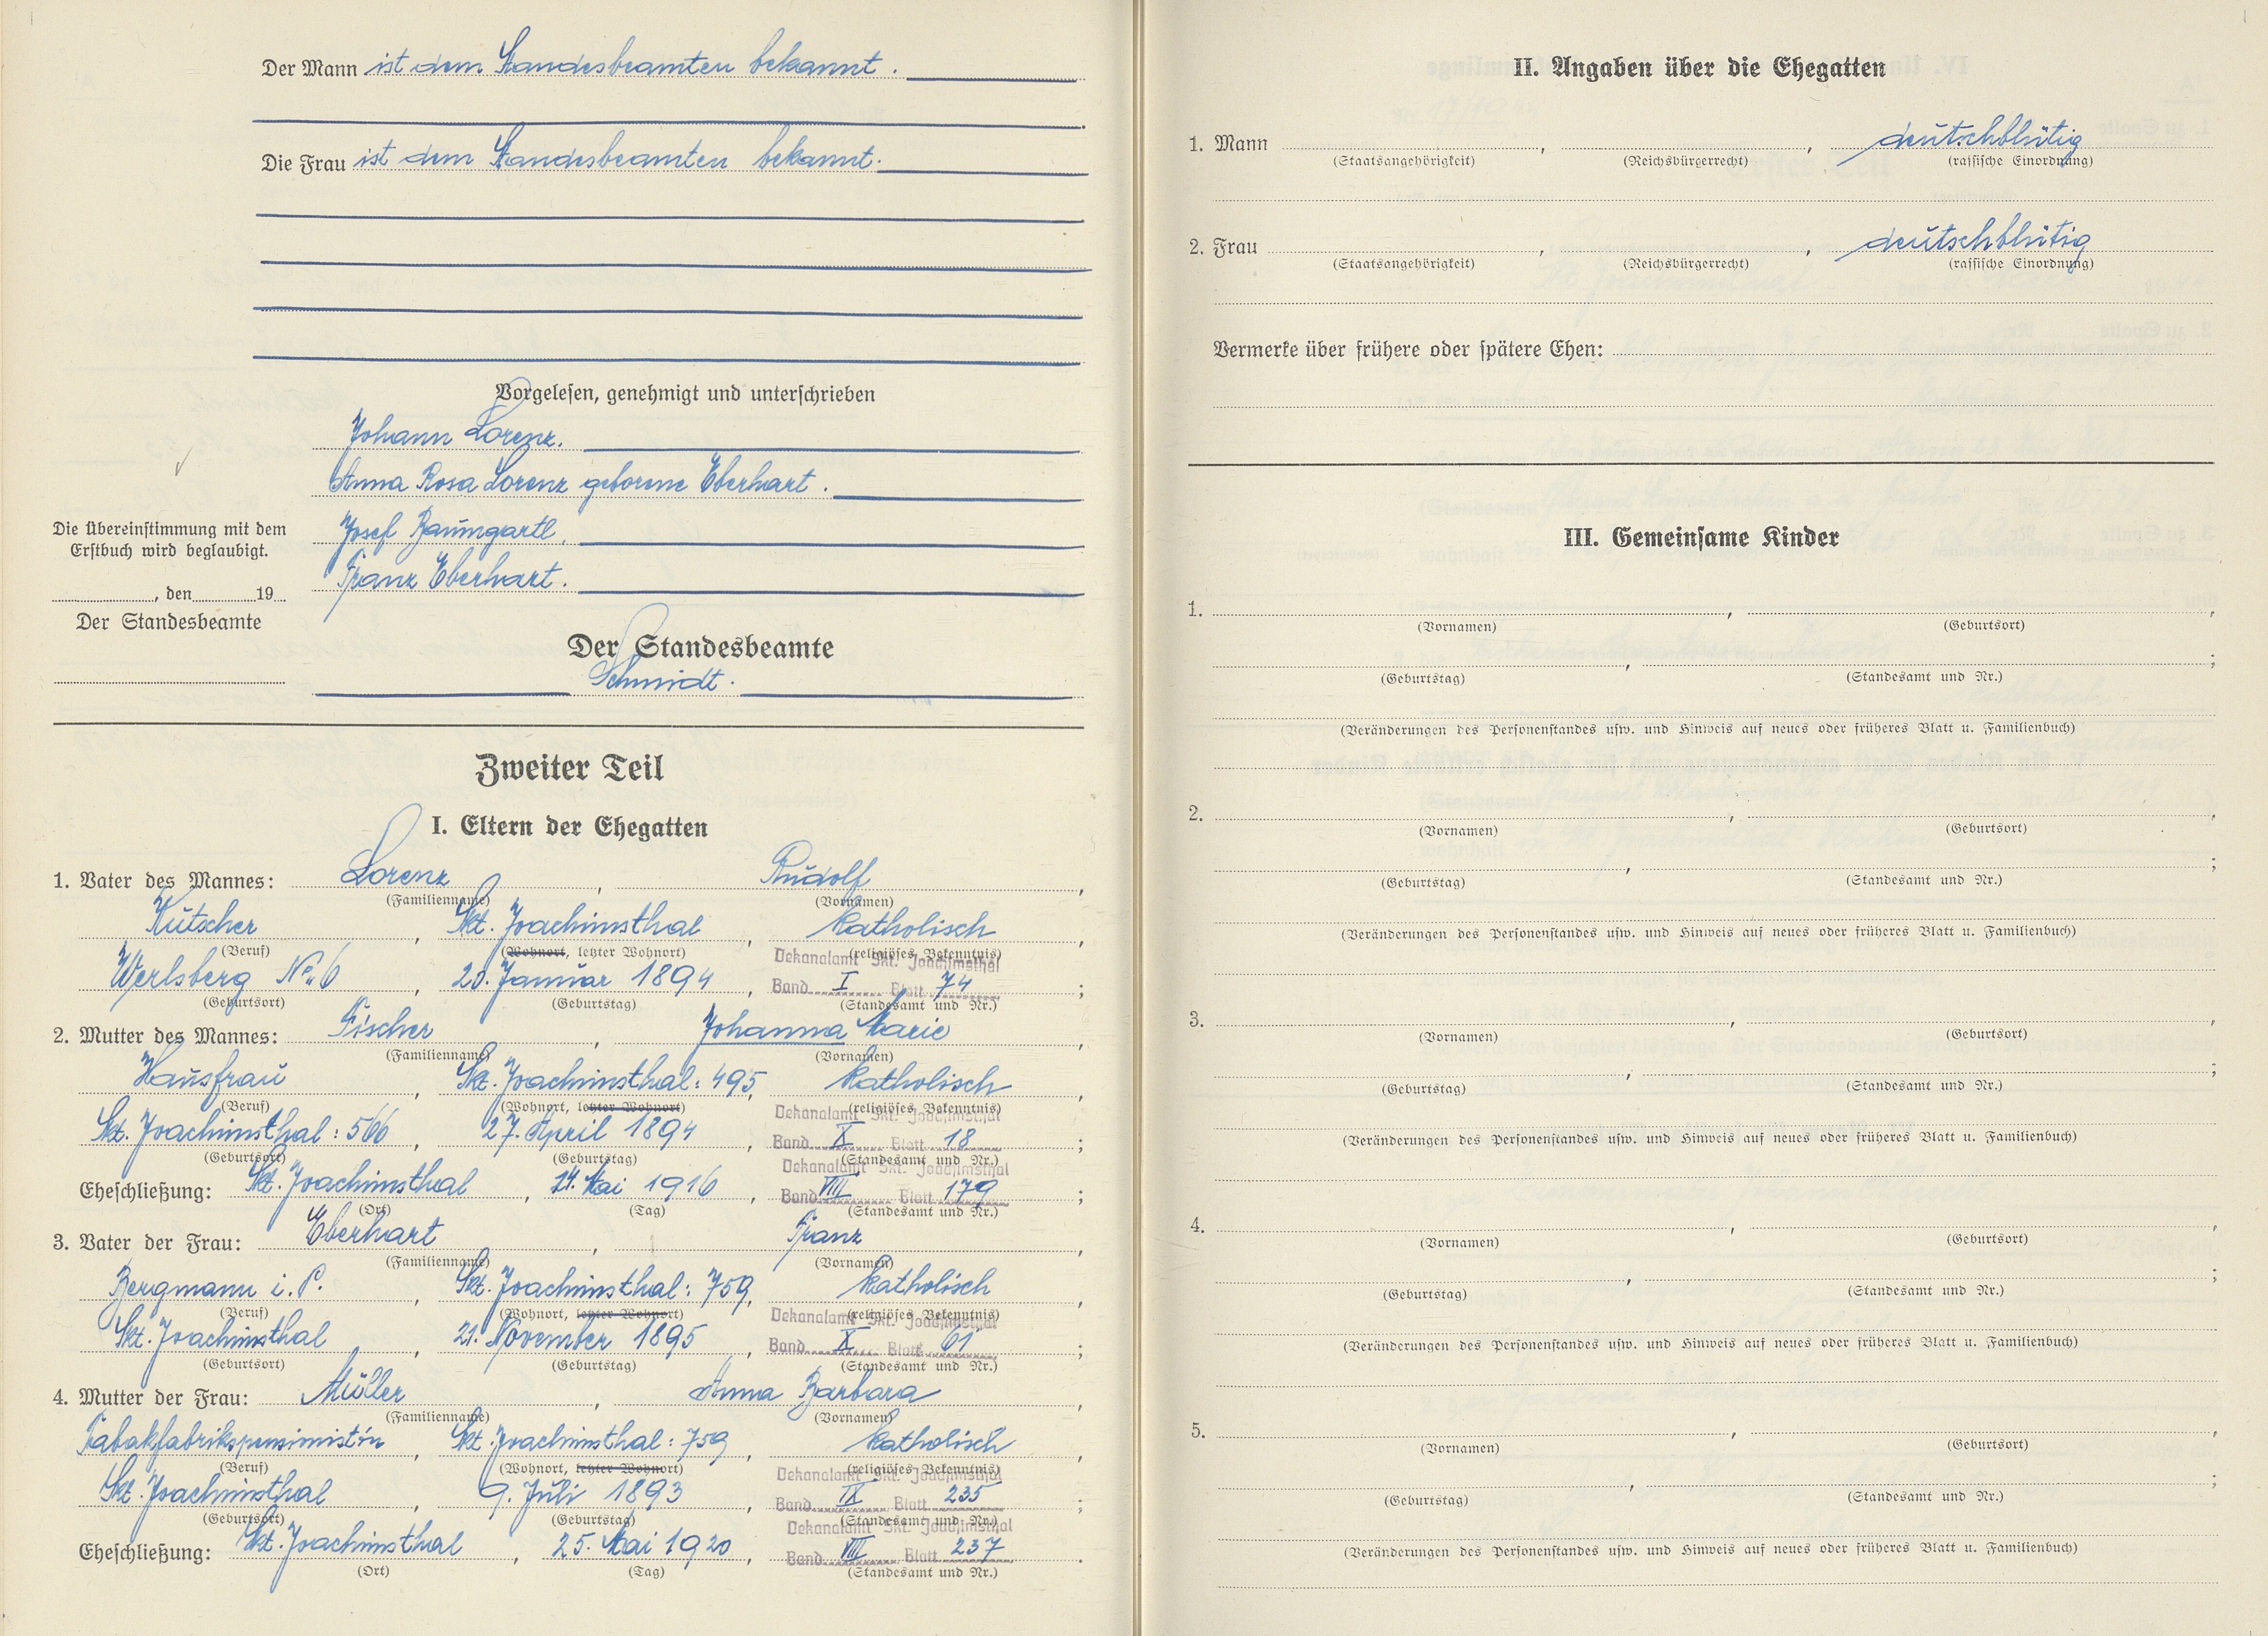 Der Mann ist dem Standesbeamten bekannt.
Die Frau ist dem Standesbeamten bekannt.
Vorgelesen, genehmigt und unterschrieben
Johann Lorenz.
Anna Rosa Lorenz geborene Eberhart.
Josef Baumgartl.
Franz Eberhart.
Die Übereinstimmung mit dem
Erstbuch wird beglaubigt.
, den 19
Der Standesbeamte
Der Standesbeamte
Schmidt.
Zweiter Teil
I. Eltern der Ehegatten
1. Vater des Mannes: Lorenz, Rudolf,
(Familienname) (Vornamen)
Kutscher, Skt. Joachimsthal, katholisch,
(Beruf) (Wohnort, letzter Wohnort) (religiöses Bekenntnis)
Dekanalamt Skt. Joachimsthal
Werlsberg No 6, 20. Januar 1894, Band I Blatt 74;
(Geburtsort) (Geburtstag) (Standesamt und Nr.)
2. Mutter des Mannes: Fischer, Johanna Marie,
(Familienname) (Vornamen)
Hausfrau, Skt. Joachimsthal: 495, katholisch,
(Beruf) (Wohnort, letzter Wohnort) (religiöses Bekenntnis)
Dekanalamt Skt. Joachimsthal
Skt. Joachimsthal: 566, 27. April 1894, Band X Blatt 18;
(Geburtsort) (Geburtstag) (Standesamt und Nr.)
Dekanalamt Skt. Joachimsthal
Eheschließung: Skt. Joachimsthal, Mai 1916, Band VIII Blatt 179;
(Ort) (Tag) (Standesamt und Nr.)
3. Vater der Frau: Eberhart, Franz,
(Familienname) (Vornamen)
Bergmann i. P., Skt. Joachimsthal: 759, katholisch,
(Beruf) (Wohnort, letzter Wohnort) (religiöses Bekenntnis)
Dekanalamt Skt. Joachimsthal
Skt. Joachimsthal, 21. November 1895, Band X Blatt 61;
(Geburtsort) (Geburtstag) (Standesamt und Nr.)
4. Mutter der Frau: Müller, Anna Barbara,
(Familienname) (Vornamen)
Tabakfabrikspensionistin, Skt. Joachimsthal: 759, katholisch,
(Beruf) (Wohnort, letzter Wohnort) (religiöses Bekenntnis)
Dekanalamt Skt. Joachimsthal
Skt. Joachimsthal, 9. Juli 1893, Band IX Blatt 235;
(Geburtsort) (Geburtstag) (Standesamt und Nr.)
Dekanalamt Skt. Joachimsthal
Eheschließung: Skt. Joachimsthal, 25. Mai 1920, Band VIII Blatt 237.
(Ort) (Tag) (Standesamt und Nr.)
II. Angaben über die Ehegatten
1. Mann , , deutschblütig
(Staatsangehörigkeit) (Reichsbürgerrecht) (rassische Einordnung)
2. Frau , , deutschblütig
(Staatsangehörigkeit) (Reichsbürgerrecht) (rassische Einordnung)
Vermerke über frühere oder spätere Ehen:
III. Gemeinsame Kinder
1. , ,
(Vornamen) (Geburtsort)
, ;
(Geburtstag) (Standesamt und Nr.)
(Veränderungen des Personenstandes usw. und Hinweis auf neues oder früheres Blatt u. Familienbuch)
2. , ,
(Vornamen) (Geburtsort)
, ;
(Geburtstag) (Standesamt und Nr.)
(Veränderungen des Personenstandes usw. und Hinweis auf neues oder früheres Blatt u. Familienbuch)
3. , ,
(Vornamen) (Geburtsort)
, ;
(Geburtstag) (Standesamt und Nr.)
(Veränderungen des Personenstandes usw. und Hinweis auf neues oder früheres Blatt u. Familienbuch)
4. , ,
(Vornamen) (Geburtsort)
, ;
(Geburtstag) (Standesamt und Nr.)
(Veränderungen des Personenstandes usw. und Hinweis auf neues oder früheres Blatt u. Familienbuch)
5. , ,
(Vornamen) (Geburtsort)
, ;
(Geburtstag) (Standesamt und Nr.)
(Veränderungen des Personenstandes usw. und Hinweis auf neues oder früheres Blatt u. Familienbuch)